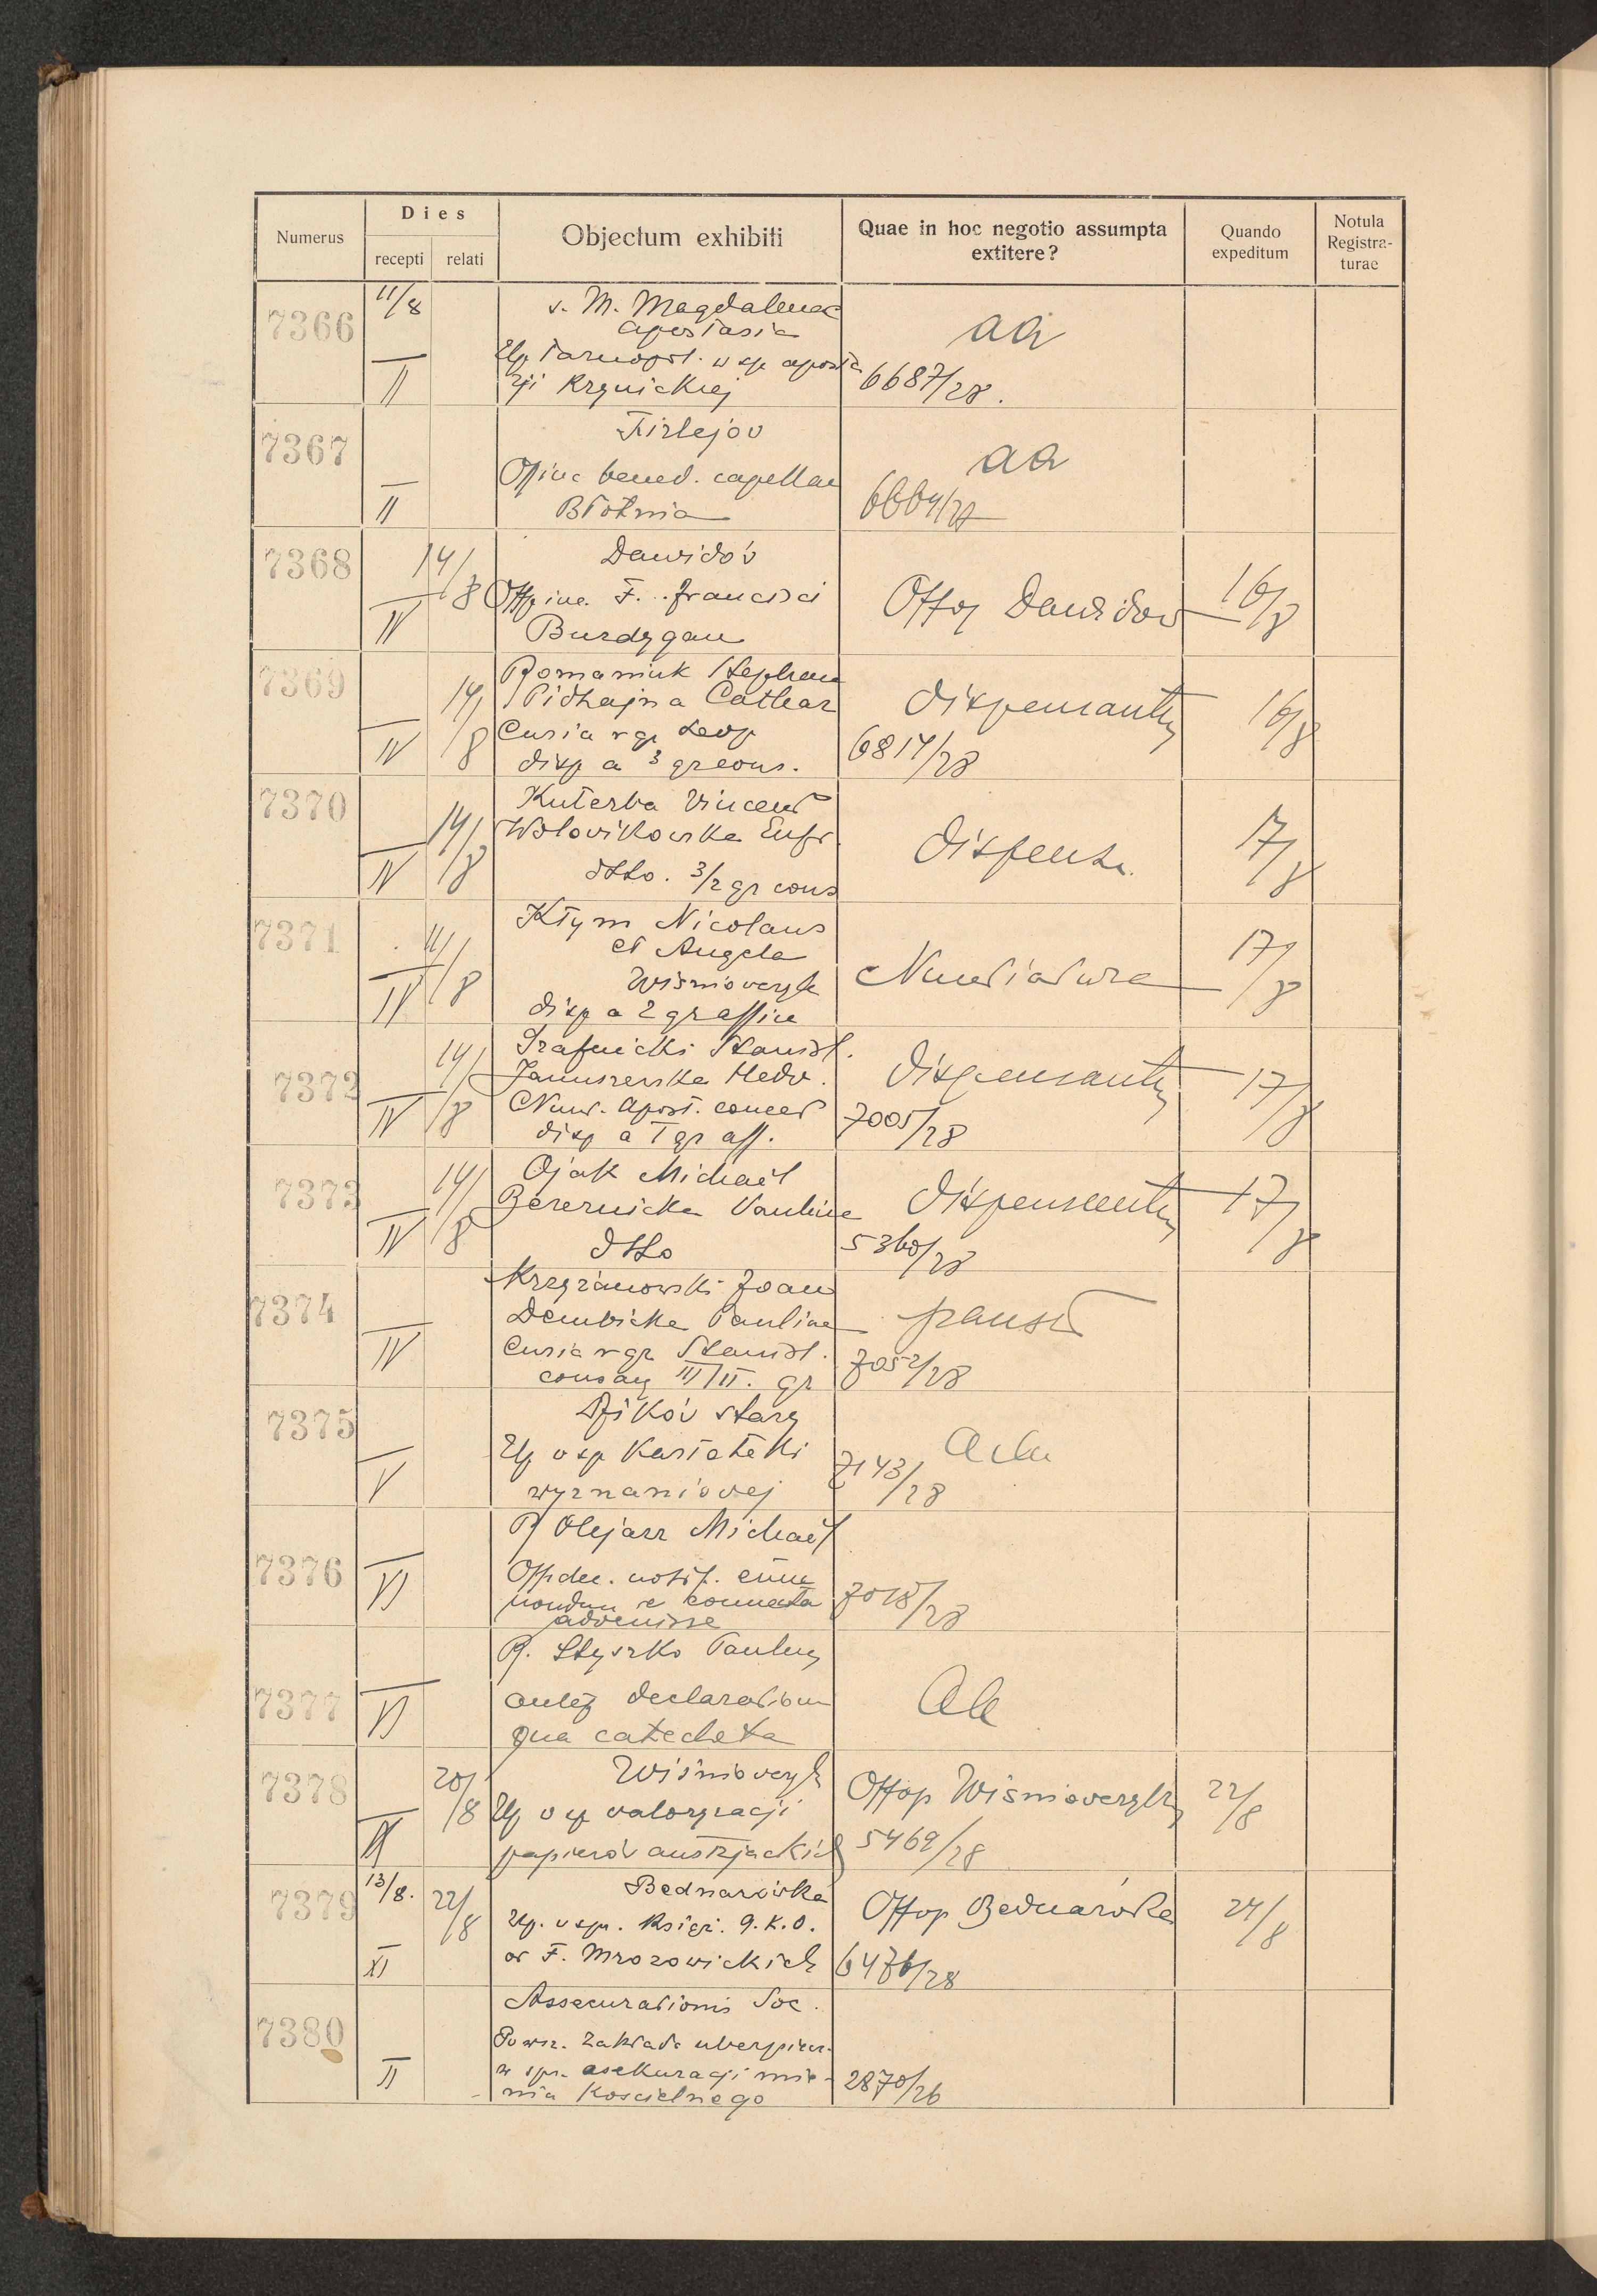 Numerus
Dies
recepti relati
Objectum exhibiti
Quae in hoc negotio assumpta
extitere?
Quando
expeditum
Notula
Registra-
turae
7366
11/8
II
s. M. Magdalenae
apostasia
Tarnopol. w sp. aposta
zji Krynickiej
aa
6687/28.
7367
II
Firlejov
Offinc bened. capellae
Błotnia
aa
7368
IV
14/8
Davidóv
Offinc. F. Francisci
Burdygan
Offoq Davidow
16/8
7369
IV
14/8
Romaniuk Stephan
Pidhajna Cathar
Curia r gr Leop
disp a 3 gr cons.
dispensantq
6814/28
16/8
7370
IV
14/8
Kuterba Vincent
Wolovikowska Eufr
dtto. 3/2 gr cons
dispens.
17/8
7371
IV
11/8
Kłym Nicolaus
et Angela
Wiśniovczyk
disp a 2 gr affin
Nuntiatura
17/8
7372
IV
14/8
Stanisl.
Januszewska Hedv.
Nunt. Apost. conced
disp a I gr aff.
dispensantq
7005/28
17/8
7373
IV
14/8
Ojak Michaël
Bezernicka Paulina
dtto
dispensantq
5360/28
17/8
7374
IV
Krzyżanowski Joan
Dembicka Paulina
Curia r gr Stanisl.
consang III/II. gr
transit
7052/28
7375
V
Dzikóv stary
v sp Kartoteki
wyznaniovej
Acta
7143/28
7376
VI
R Olejarz Michaël
Offdec. notif. eum
nondum e
advenisse
7018/28
7377
VI
R. Styszko Paulus
declarationem
qua catecheta
7378
IX
20/8
Wiśniovczyk
v sp valoryzacji
papieróv austrjackich
Offop Wiśniovczyk
5469/28
22/8
7379
13/8.
XI
22/8
Bednarówka
v spr. Książ. P.K.O.
or F. Mrozowickich
Offop Bednarówka
6476/28
24/8
7380
II
Assecurationis Soc.
Powsz. Zakład ubezpiecz.
w spr. asekuracji mie-
nia Kościelnego
2870/26